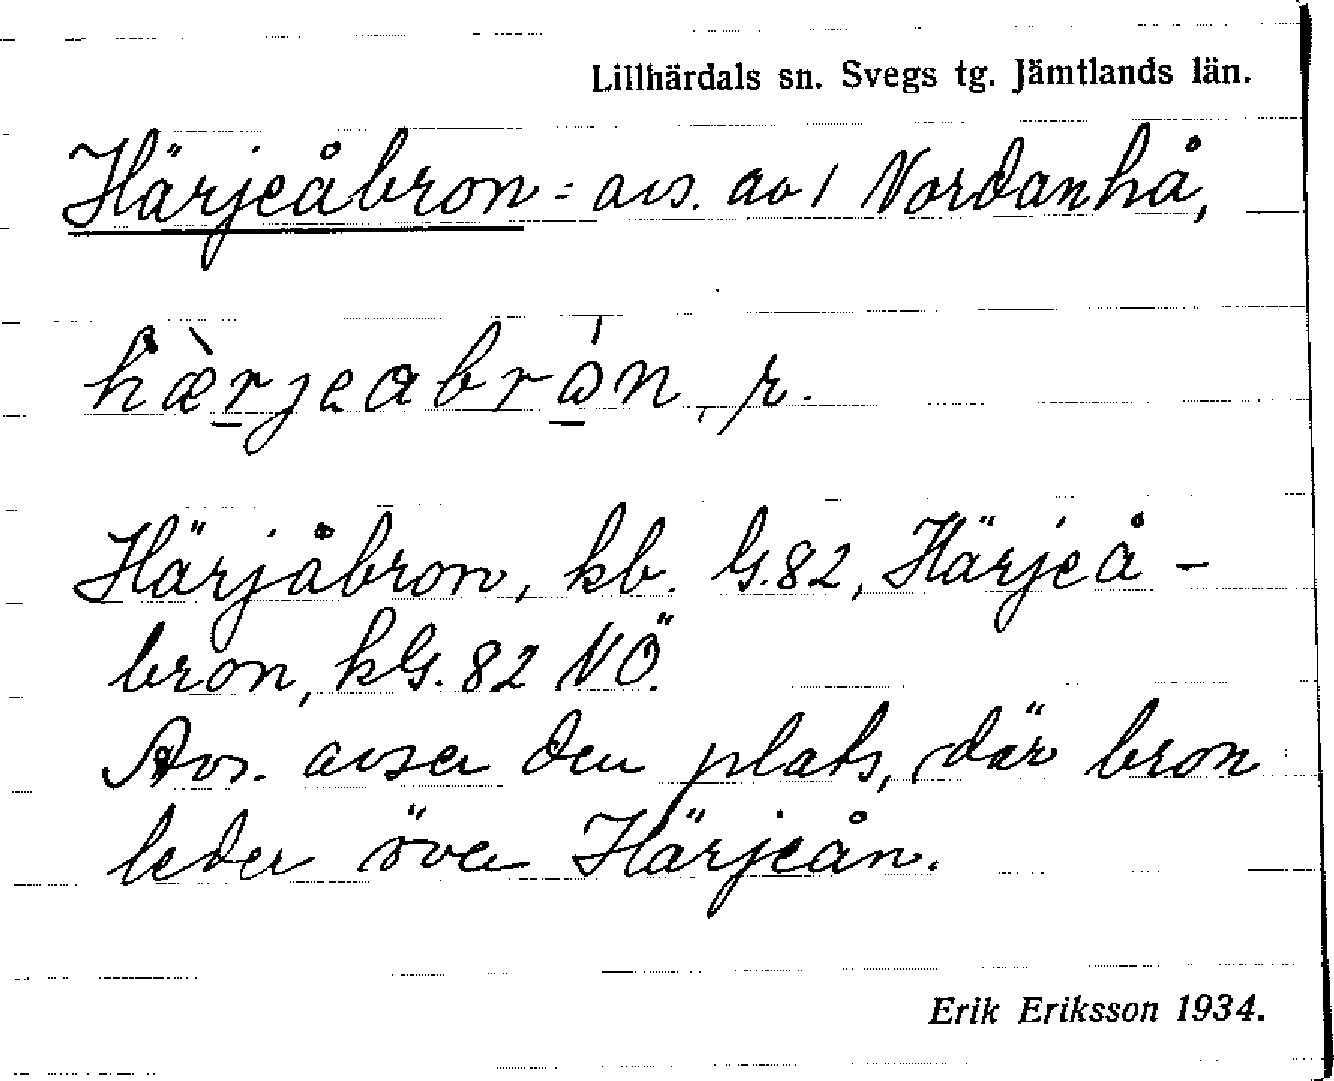 Lillhärdals sn. Svegs tg. Jämtlands län.
Härjeåbron = avs. av 1 Nordanhå,
hæ̀rjeabrón, r.
Härjåbron, kb. G.82, Härjeå-
bron, kG. 82 NÖ.
Avs. avser den plats, där bron
leder över Härjeån.
Erik Eriksson 1934.